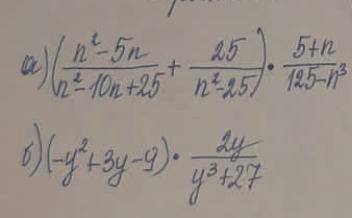 а) ((n²-5n)/(n²-10n+25) + 25/(n²-25)) · (5+n)/(125-n³)
б) (-y²+3y-9) · 2y/(y³+27)